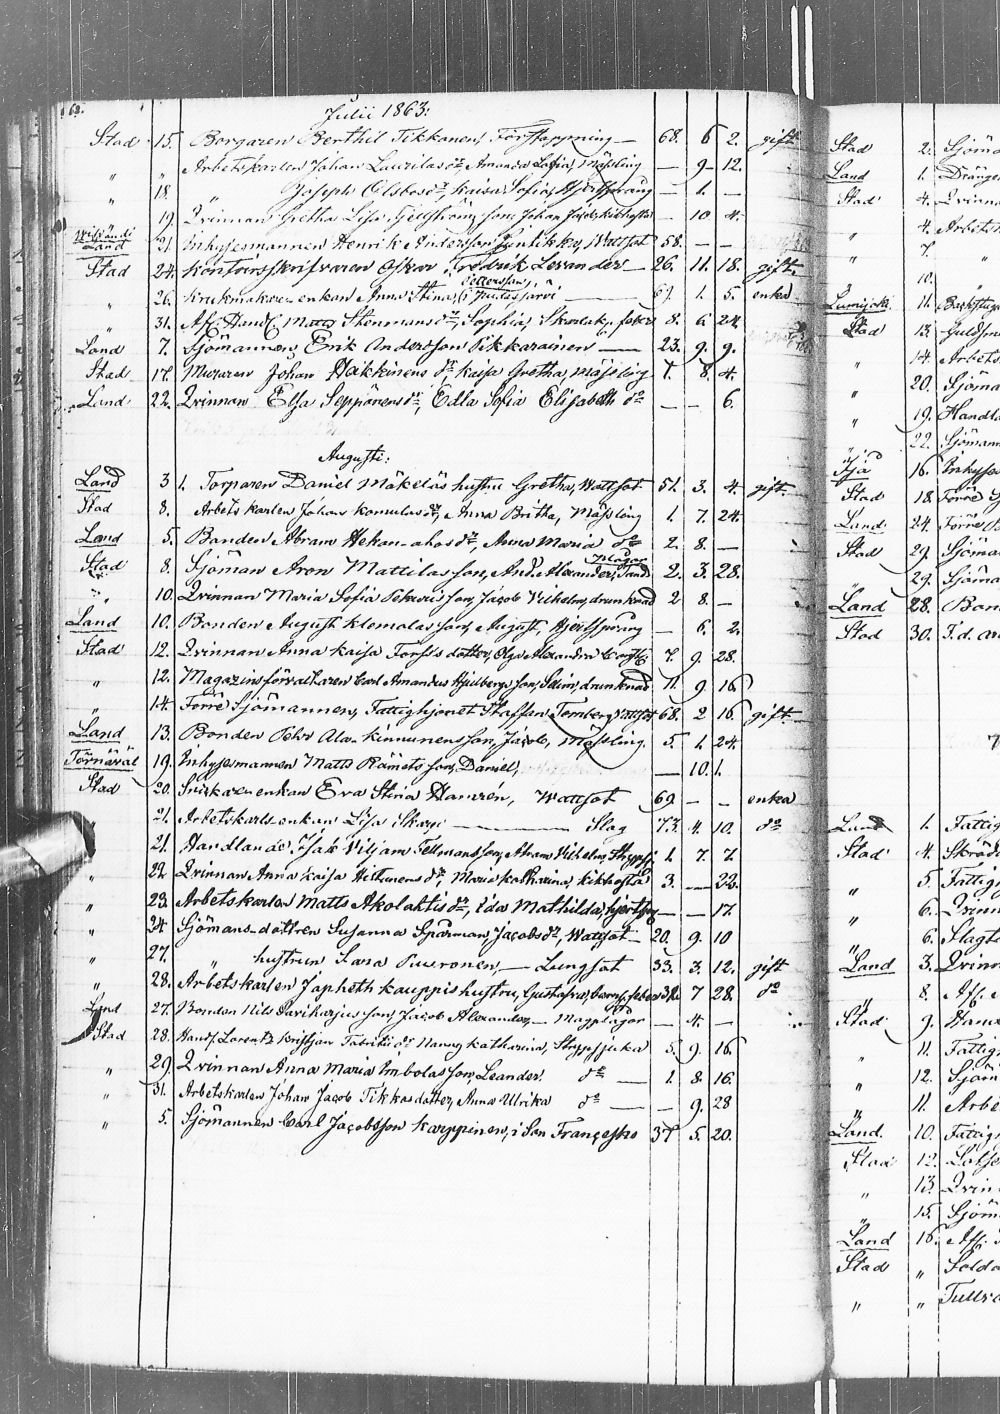 Julii 1863:
Stad 15. Borgaren Berthil Tikkanen, Förstoppning — 68. 6 2. gift
" " Arbetskarlen Johan Laurilas dr, Amanda Sofia, Mässling — 9 12.
" 18 " Joseph dr, Kaisa Sofia, Hjertsprång — 1. —
" 19. Qvinnan Gretha Lisa son, Johan Jacob, kikhosta — 10 4.
Land 21. Inhysesmannen Henrik Andersson Wattsot 58. — —
Stad 24. Kontoirsskrifvaren Oskar Fredrik Levander — 26. 11. 18. gift.
" 26. Krukmakare enkan Anna Stina Pettersson, — 67. 1. 5. enka
" 31. Afs. Matts Stenmans dr, Sophia, Skarlak. feber 8. 6 24.
Land 7. Sjömannen, Erik Andersson Pikkarainen — 23. 9. 9.
Stad 17. Muraren Johan Hakkinens dr, Kaisa Gretha, Mässling 7. 8. 4.
Land 22. Qvinnan Elsa Seppänens dr, Edla Sofia Elisabeth do — — 6.
Augusti:
Land 3 1. Torparen Daniel Mäkeläs hustru Gretha, Wattsot 51. 3. 4. gift.
Stad 8. Arbetskarlen Johan Komulas dr, Anna Britha, Mässling 1. 7. 24.
Land 5. Bonden Abram Hekan-ahos dr, Anna Maria do 2. 8. —
Stad 8. Sjöman Aron Mattilas son, And. Alexander, Tand plågor 2. 3. 28.
" 10. Qvinnan Maria Sofia son, Jacob Vilhelm, drunknad 2 8. —
Land 10. Bonden August Klemolas son, August, Hjertsprång — 6. 2.
Stad 12. Qvinnan Anna Kaisa Forss dotter, Olga Alexandra 7. 9. 28.
" 12. Magazinsförvaltaren Carl Amandus Hjelbergs son, Selim, drunknad 11. 9 16
" 14. Förre Sjömannen, Fattighjonet Staffan Tornberg Wattsot 68. 2 16. gift
Land 13. Bonden Pehr Ala-Kinnunens son, Jacob, Mässling. 5. 1. 24.
19. Inhysesmannen Matts Rämets son, Daniel, — 10. 1.
Stad 20. Snickareenkan Eva Stina Hanxén, Wattsot 69 — — enka
" 21. Arbetskarls enkan Lisa — Slag 73. 4. 10. do
21. Handlande, Isak Viljam Fellmans son, Abram Vilhelm, 1. 7. 7.
" 22. Qvinnan Anna Kaisa dr, Maria Katharina, kikhosta 3. — 22.
" 23. Arbetskarlen Matts Akolahtis dr, Ida Mathilda, — — 17.
" 24 Sjömans-dottren Susanna Sparman, Jacobs dr, Wattsot — 20. 9. 10
" 27. " hustrun Sara Puuronen, — Lungsot 33. 3. 12. gift
" 28. Arbetskarlen Japheth Kauppis hustru, Gustafva, barns. feber 32. 7 28. do
Land 27. Bonden Nils Hariharjus son, Jacob Alexander, — Magplågor — 4. —
Stad 28. Handl. Lorentz Kristjan dr Nanny Katharina, Strypsjuka 5. 9. 16.
" 29. Qvinnan Anna Maria Imbolas son, Leander. do — 1. 8. 16.
" 31. Arbetskarlen Johan Jacob Tikkas dotter, Anna Ulrika do — — 9. 28
" 5. Sjömannen Carl Jacobsson Karppinen, i San Francesko 37 5. 20.
Stad 2.
Land 1. Drängen
Stad 4. Qvinn
" 4. Arbets
" 7. "
10. "
Lumijoki 11. Backstuga
Stad 13. Guldsm
" 14. Arbets
20. Sjöma
" 19. Handla
" 22. Sjöman
16. Inhyse
Stad 18. Förre
Land 24. Förre
Stad 29. Sjöma
" 29. Sjöma
Land 28. Bon
Stad 30.
Land 1. Fattig
Stad 4. Skräd
" 5. Fattig
" 6. Qvinn
" 6. Slagt
Land 3. Qvinn
" 8. Afs.
Stad 9. Hand
" 11. Fattig
" 12. Sjöm
" 11. Arbe
Land. 10. Fattig
Stad 12. Lots
" 13. Qvin
" 15. Sjöm
Land 16. Afs.
Stad " Solda
" " Tullva